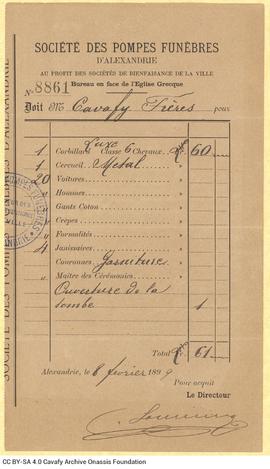 SOCIÉTÉ DES POMPES FUNÈBRES
D'ALEXANDRIE
AU PROFIT DES SOCIÉTÉS DE BIENFAISANCE DE LA VILLE
N° 8861 Bureau en face de l'Eglise Grecque
Doit M Cavafy Frères pour
1 Corbillard Luxe Classe 6 Chevaux 60
1 Cercueil Métal »
20 Voitures »
» Housses »
» Gants Coton »
» Crêpes »
» Formalités »
4 Janissaires »
Couronnes Garniture »
Maître des Cérémonies »
Ouverture de la
tombe 1
Total 61
Alexandrie, le 8 février 1899
Pour acquit
Le Directeur
SOCIÉTÉ DES POMPES FUNÈBRES D'ALEXANDRIE
POMPES FUNÈBRES
CC BY-SA 4.0 Cavafy Archive Onassis Foundation